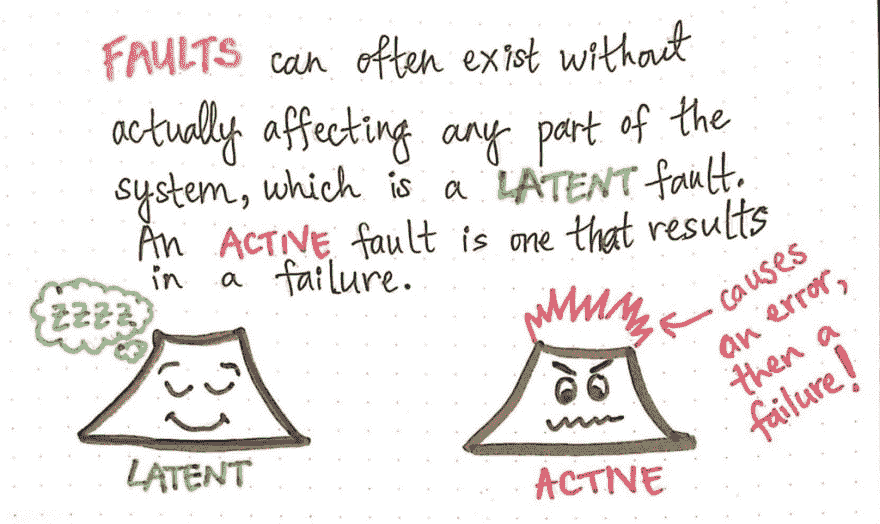 FAULTS can often exist without
actually affecting any part of the
system, which is a LATENT fault.
An ACTIVE fault is one that results
in a failure.
causes
an error,
then a
failure!
zzzz
LATENT
ACTIVE